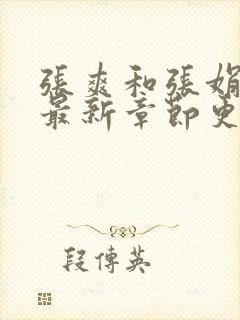 張爽和張娟
最新章節更
段傳英